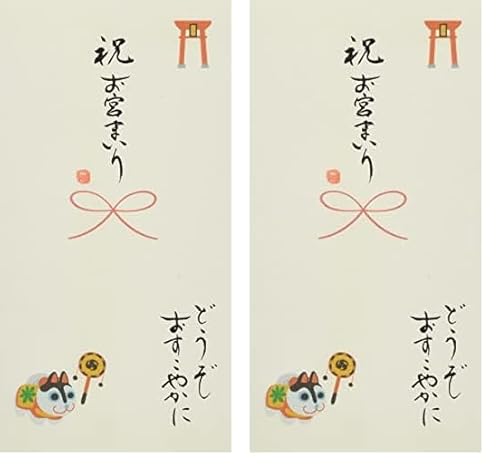 祝
お宮まいり
どうぞ
おすこやかに
祝
お宮まいり
どうぞ
おすこやかに